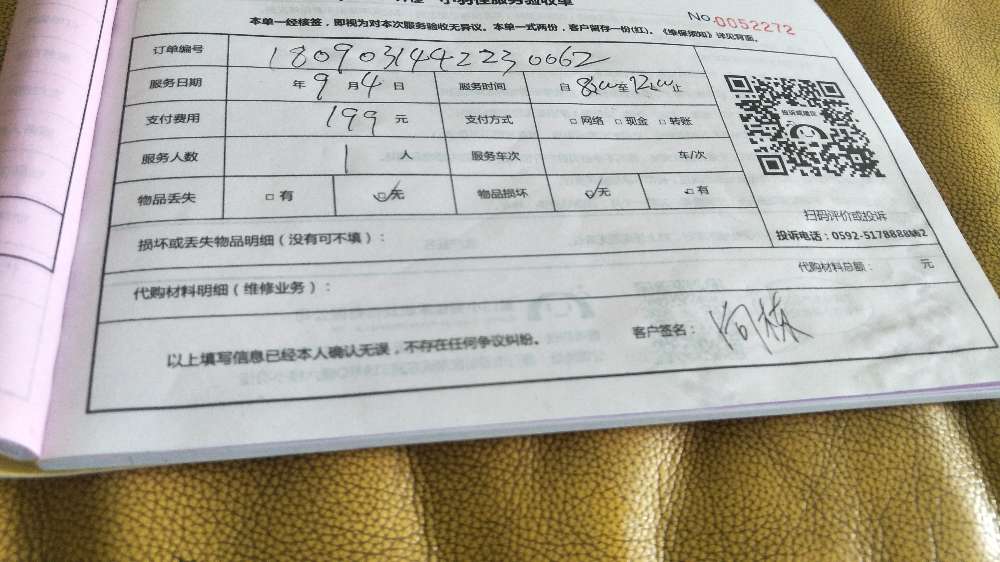 服务验收单
本单一经核签，即视为对本次服务验收无异议。本单一式两份，客户留存一份(红)。《维保须知》详见背面。
No.0052272
订单编号 180903144223 0062
服务日期 年 9 月 4 日 服务时间 自 至 止
支付费用 199 元 支付方式 □网络 □现金 □转账
服务人数 1 人 服务车次 车/次
物品丢失 □有 □无 物品损坏 □无 □有
投诉或建议
扫码评价或投诉
投诉电话：0592-5178888
损坏或丢失物品明细（没有可不填）：
代购材料明细（维修业务）： 代购材料总额： 元
以上填写信息已经本人确认无误，不存在任何争议纠纷。 客户签名：